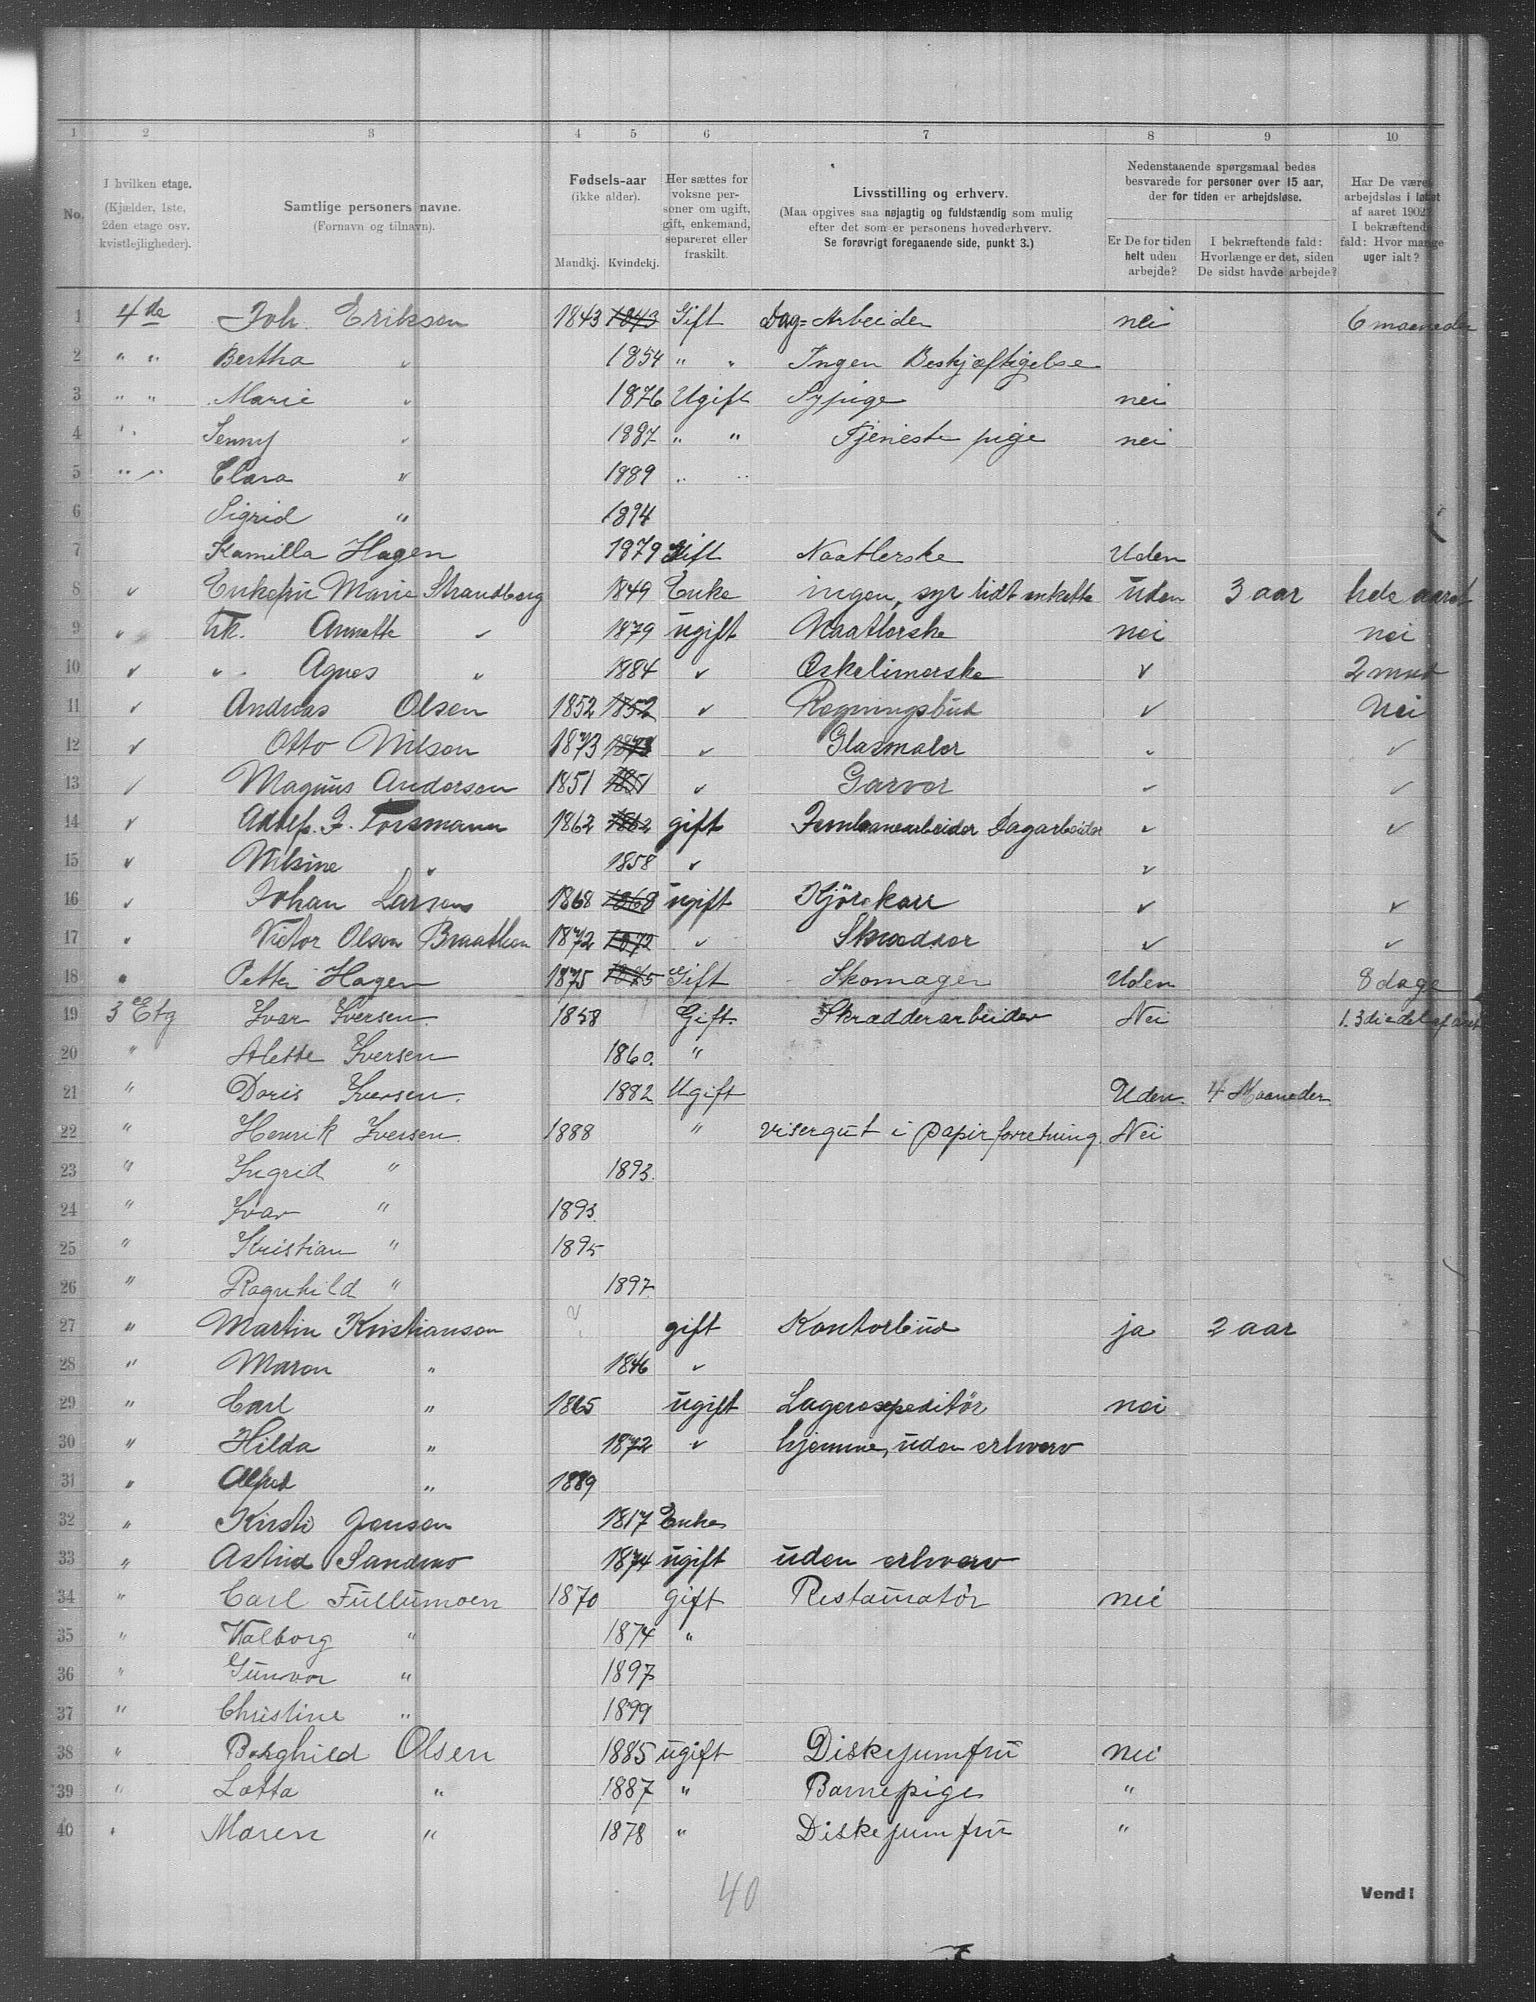 1 2 3 4 5 6 7 8 9 10
No. I hvilken etage. (Kjælder, 1ste, 2den etage osv. kvistlejligheder). Samtlige personers navne. (Fornavn og tilnavn). Fødsels-aar (ikke alder). Mandkj. Kvindekj. Her sættes for voksne personer om ugift, gift, enkemand, separeret eller fraskilt. Livsstilling og erhverv. (Maa opgives saa nøjagtig og fuldstændig som mulig efter det som er personens hovederhverv. Se forøvrigt foregaaende side, punkt 3.) Nedenstaaende spørgsmaal bedes besvarede for personer over 15 aar, der for tiden er arbejdsløse. Er De for tiden helt uden arbejde? I bekræftende fald: Hvorlænge er det, siden De sidst havde arbejde? Har De været arbejdsløs i løbet af aaret 1902? I bekræftende fald: Hvor mange uger ialt?
1 4de Joh. Eriksen 1843 1843 Gift Dag=Arbeider nei 6 maaneder
2 " " Bertha " 1854 " " Ingen Beskjæftigelse
3 " " Marie " 1876 Ugift Sypige nei
4 " Jenny " 1887 " " Tjeneste pige nei
5 " " Clara " 1889 " "
6 Sigrid " 1894
7 Kamilla Hagen 1879 Gift Naatlerske Uden
8 " Enkefru Marie Strandberg 1849 Enke ingen, syr lidt enkelte uden 3 aar hele aaret
9 " Frk. Annette " 1879 ugift Naatlerske nei nei
10 " " Agnes " 1884 " Eskelimerske " 2 mnd
11 " Andreas Olsen 1852 1852 " Regningsbud " Nei
12 " Otto Nilsen 1873 1873 " Glasmaler " "
13 " Magnus Andersen 1851 1851 " Garver " "
14 " Adolf. F. Forsmann 1862 1862 gift Jernbanearbeider Dagarbeider " "
15 " Nilsine " 1858 " "
16 " Johan Larsen 1868 1868 ugift Kjørekarr " "
17 " Victor Olsen Braathen 1872 1872 " Skrædder " "
18 " Petter Hagen 1875 1875 Gift Skomager Uden 8 dage
19 3 Etg Ivar Iversen 1858 Gift. Skrædderarbeider Nei 1. 3diedel af aaret
20 " Alette Iversen 1860. "
21 " Doris Iversen. 1882 Ugift Uden. 4 Maaneder
22 " Henrik Iversen. 1888 " Visergut i Papirforretning. Nei
23 " Ingrid " 1893.
24 " Ivar " 1893.
25 " Kristian " 1895
26 " Ragnhild " 1897
27 " Martin Kristiansen gift Kontorbud ja 2 aar
28 " Maren " 1846 "
29 " Carl " 1865 ugift Lagerexpeditør nei
30 " Hilda " 1872 " hjemme, uden erhverv
31 " Alfred " 1889
32 " Kirsti Jensen 1817 Enke
33 " Astrid Sandmo 1874 ugift uden erhverv
34 " Carl Fullumoen 1870 gift Restauratør nei
35 " Valborg " 1874 "
36 " Gunvor " 1897
37 " Christine " 1899
38 " Borghild Olsen 1885 ugift Diskejumfru nei
39 " Lotta " 1887 " Barnepige "
40 " Maren " 1878 " Diskejumfru "
40
Vend!